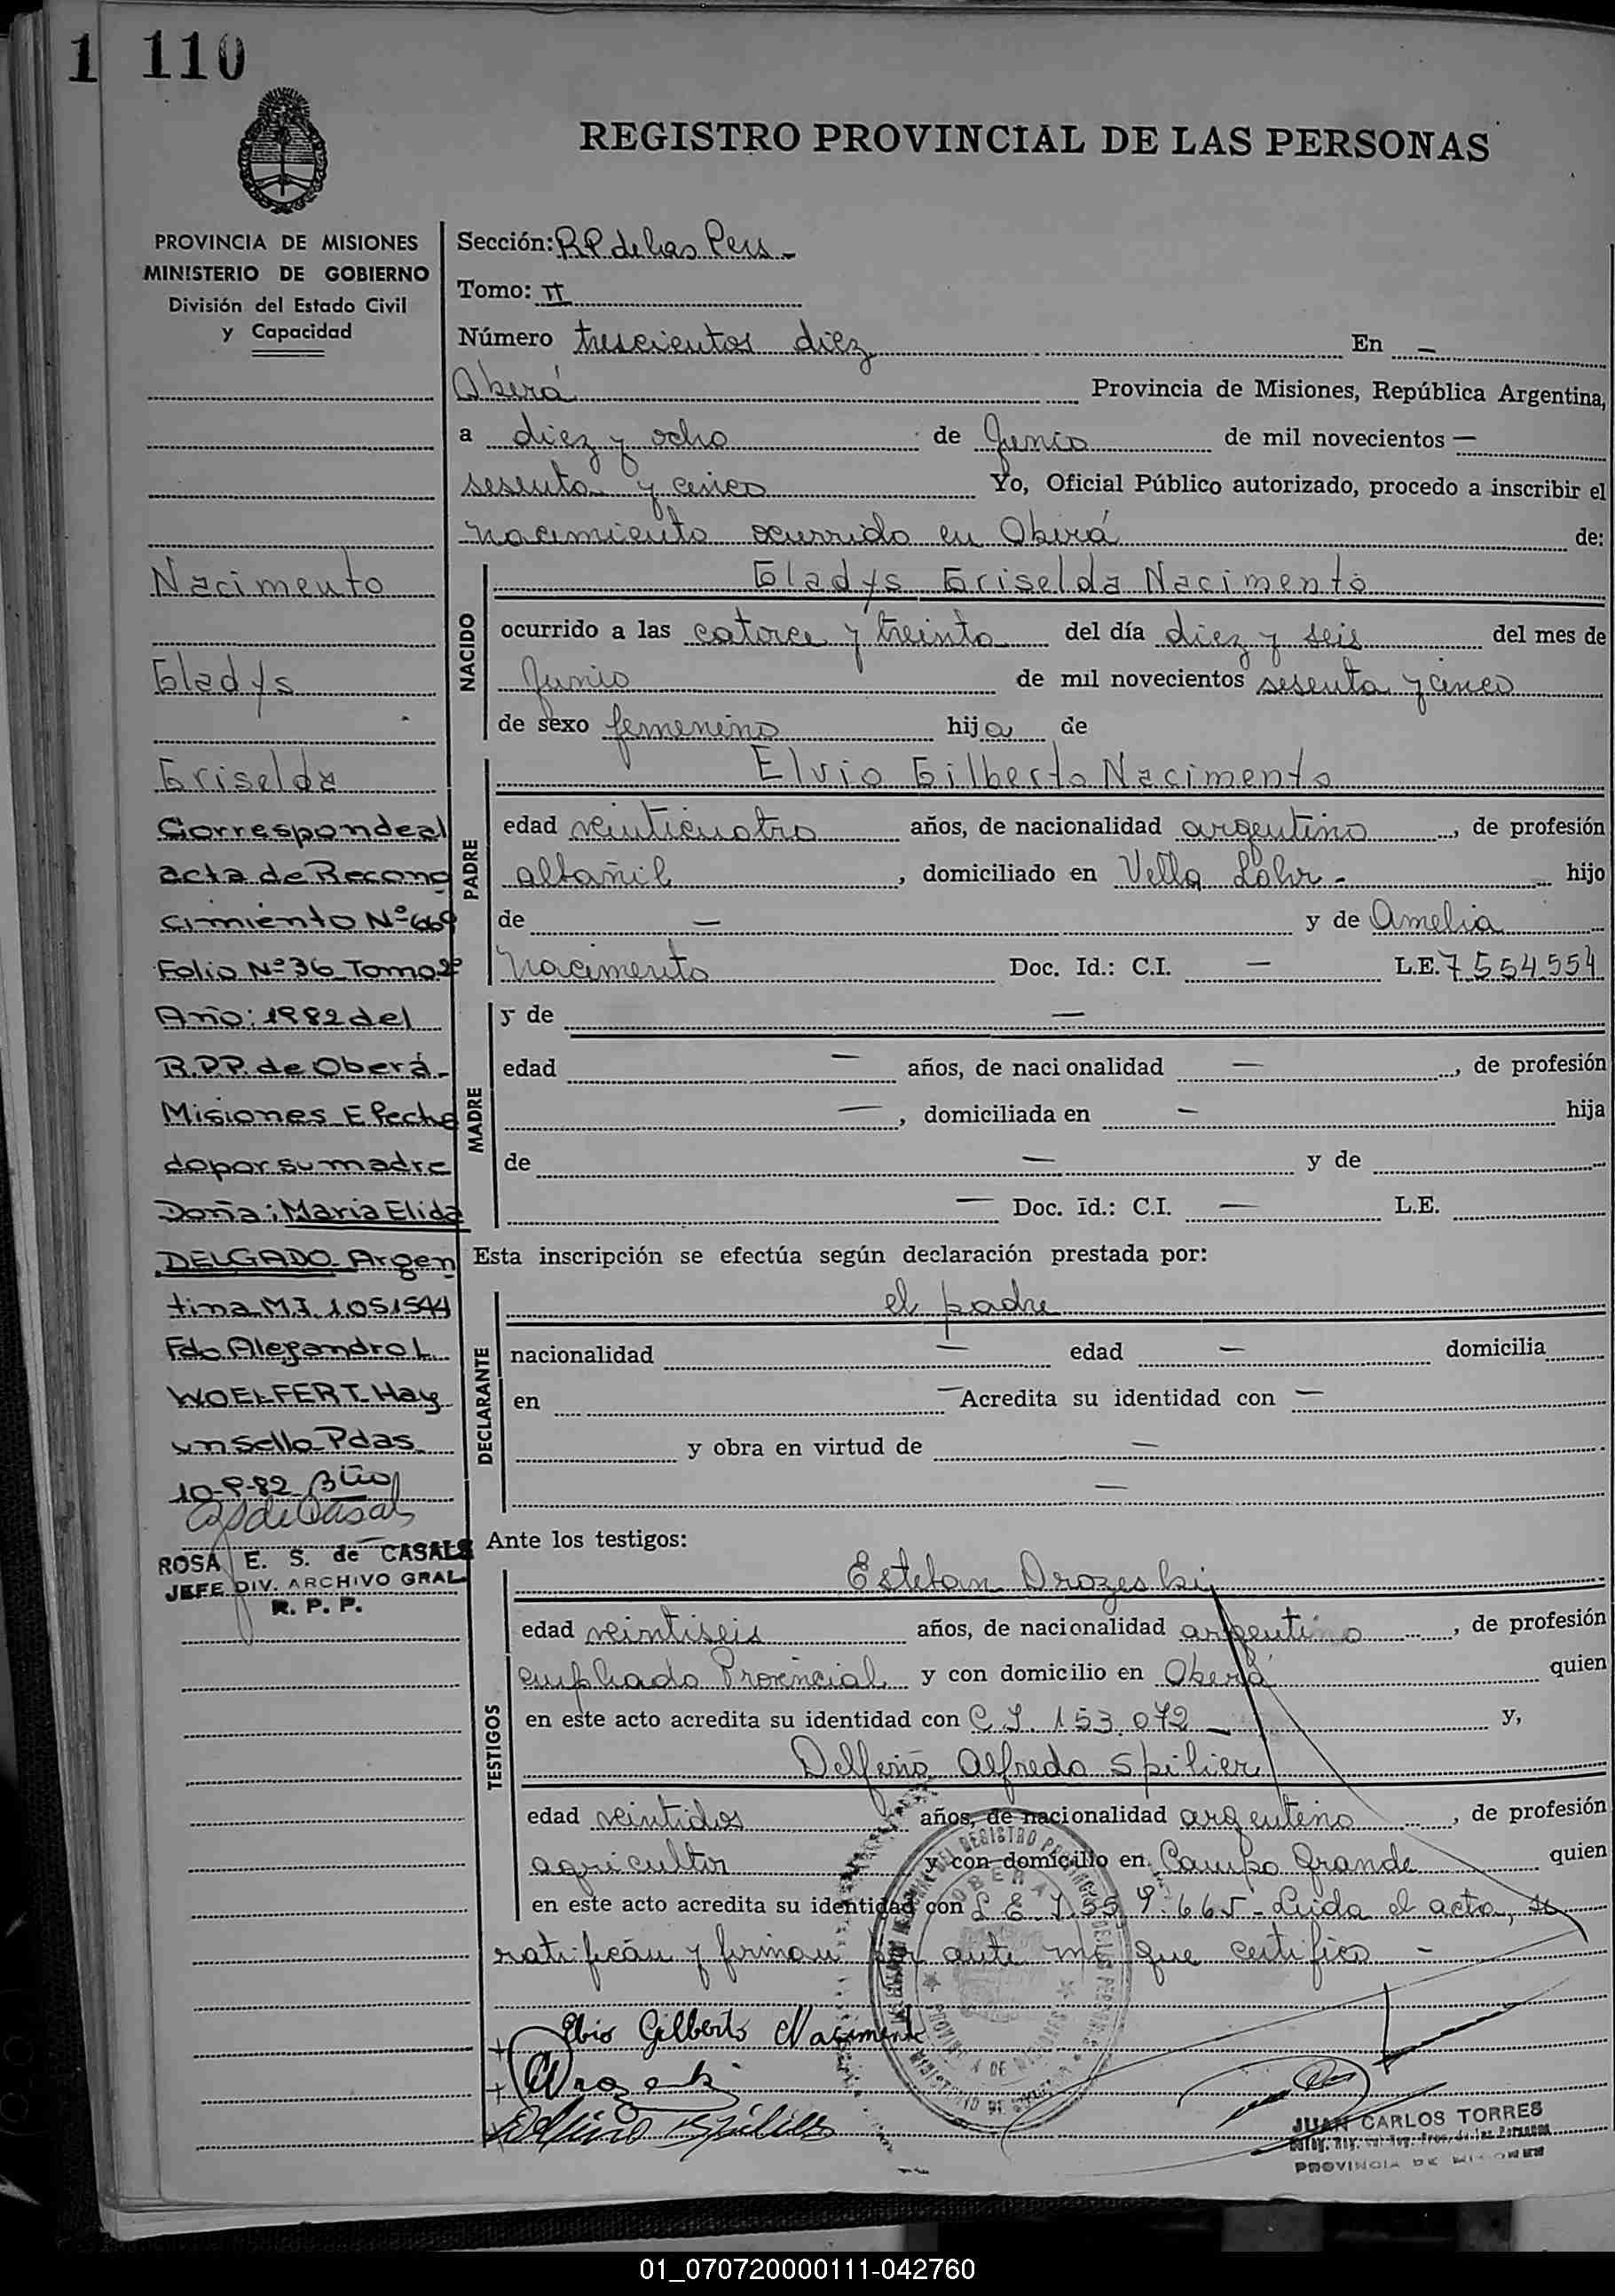 1 110
REGISTRO PROVINCIAL DE LAS PERSONAS
PROVINCIA DE MISIONES
MINISTERIO DE GOBIERNO
División del Estado Civil
y Capacidad
Nacimento
Gladys
Griselda
Corresponde al
acta de Recono
cimiento Nº 669
Folio Nº 36 Tomo 2º
Año: 1982 del
R.P.P. de Oberá -
Misiones Efectua
do por su madre
Doña: Maria Elida
DELGADO Argen
tina M.I. 1.051544
Fdo Alejandro L.
WOELFERT. Hay
un sello Pdas.
10-9-82
ROSA E. S. de CASALS
JEFE DIV. ARCHIVO GRAL
R. P. P.
Sección: R.P. de las Pers -
Tomo: II
Número trescientos diez En -
Oberá Provincia de Misiones, República Argentina,
a diez y ocho de Junio de mil novecientos —
sesenta y cinco Yo, Oficial Público autorizado, procedo a inscribir el
nacimiento ocurrido en Oberá de:
NACIDO
Gladys Griselda Nacimento
ocurrido a las catorce y treinta del día diez y seis del mes de
Junio de mil novecientos sesenta y cinco
de sexo femenino hija de
PADRE
Elvio Gilberto Nacimento
edad veinticuatro años, de nacionalidad argentino, de profesión
albañil, domiciliado en Villa Lohr - hijo
de — y de Amelia
Nacimento Doc. Id.: C.I. — L.E. 7.554.554
MADRE
y de —
edad — años, de nacionalidad —, de profesión
—, domiciliada en — hija
de — y de
— Doc. Id.: C.I. — L.E.
Esta inscripción se efectúa según declaración prestada por:
DECLARANTE
el padre
nacionalidad — edad — domicilia
en — Acredita su identidad con —
y obra en virtud de —
—
Ante los testigos:
TESTIGOS
Esteban Drozeski
edad veintiseis años, de nacionalidad argentino, de profesión
empleado Provincial y con domicilio en Oberá quien
en este acto acredita su identidad con C.I. 153.072 — y,
Delfino Alfredo Spilier
edad veintidos años, de nacionalidad argentino, de profesión
agricultor y con domicilio en Campo Grande quien
en este acto acredita su identidad con L.E. 7.559.665 - Leida el acta, se
ratifican y firman por ante mi que certifico -
Elvio Gilberto Nacimento
JUAN CARLOS TORRES
PROVINCIA DE MISIONES
01_070720000111-042760